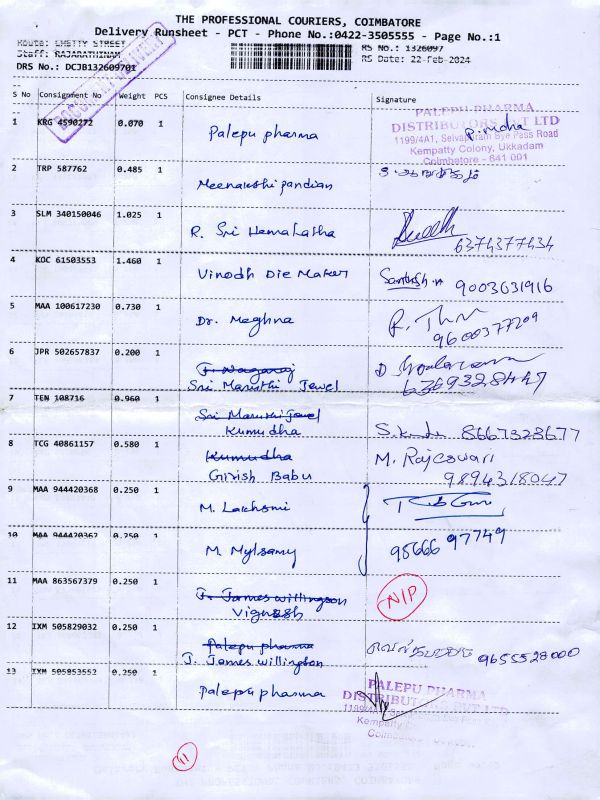 THE PROFESSIONAL COURIERS, COIMBATORE
Delivery Runsheet - PCT - Phone No.:0422-3505555 - Page No.:1
Route: CHETTY STREET
RS No.: 1326097
Staff: RAJARATHINAM
RS Date: 22-Feb-2024
DRS No.: DCJB132609701
S No Consignment No Weight PCS Consignee Details Signature
1 KRG 4590272 0.070 1 Palepu pharma
PALEPU PHARMA
DISTRIBUTORS PVT LTD
1199/4A1, Selvapuram Bye Pass Road
Kempatty Colony, Ukkadam
Coimbatore - 641 001
2 TRP 587762 0.485 1 Meenakshi pandian
3 SLM 340150046 1.025 1 R. Sri Hemalatha
6374377434
4 KOC 61503553 1.460 1 Vinodh Die Maker Santhsh.n 9003631916
5 MAA 100617230 0.730 1 Dr. Meghna
9600377209
6 JPR 502657837 0.200 1 T. Nagaraj
Sri Maruthi Jewel 6369328447
7 TEN 108716 0.960 1 Sri Maruthi Jewel
Kumudha 8667323677
8 TCG 40861157 0.580 1 Kumudha M. Rajeswari
Girish Babu 9894318047
9 MAA 944420368 0.250 1 M. Lakhsmi
10 MAA 944420362 0.250 1 M. Mylsamy 95666 97749
11 MAA 863567379 0.250 1 J. James willingson N/P
Vignesh
12 IXM 505829032 0.250 1 Palepu pharma
J. James willingson 9655528000
13 IXM 505853552 0.250 1 Palepu pharma
PALEPU PHARMA
DISTRIBUTORS PVT LTD
11